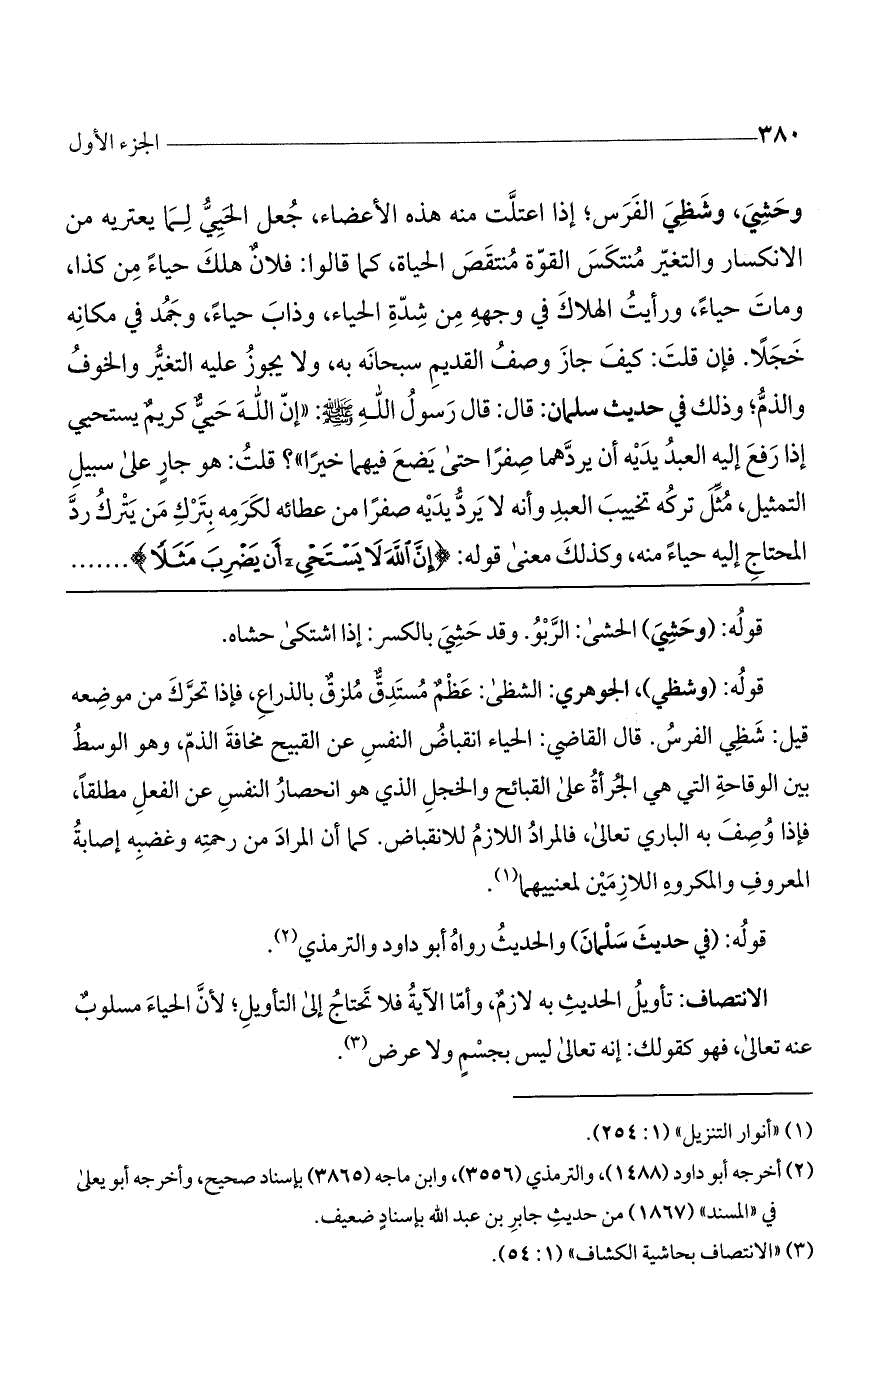 ٣٨٠ الجزء الأول
وحَشِيَ، وشَظِيَ الفَرَس؛ إذا اعتلَّت منه هذه الأعضاء، جُعل الحَيِيُّ لِـمَا يعتريه من
الانكسار والتغيّر مُنتكَسَ القوّة مُنتقَصَ الحياة، كما قالوا: فلانٌ هلكَ حياءً مِن كذا،
وماتَ حياءً، ورأيتُ الهلاكَ في وجههِ مِن شِدّةِ الحياء، وذابَ حياءً، وجَمُد في مكانِه
خَجَلًا. فإن قلتَ: كيفَ جازَ وصفُ القديمِ سبحانَه به، ولا يجوزُ عليه التغيُّر والخوفُ
والذمُّ؛ وذلك في حديث سلمان: قال: قال رَسولُ اللـهِ ﷺ: «إنّ اللـهَ حَييٌّ كريمٌ يستحيي
إذا رَفعَ إليه العبدُ يدَيْه أن يردَّهما صِفرًا حتىٰ يَضعَ فيهما خيرًا»؟ قلتُ: هو جارٍ علىٰ سبيلِ
التمثيل، مُثِّلَ تركُه تخييبَ العبدِ وأنه لا يَردُّ يدَيْه صفرًا من عطائه لكَرَمِه بِتَرْكِ مَن يَتْركُ ردَّ
المحتاجِ إليه حياءً منه، وكذلكَ معنىٰ قوله: ﴿إِنَّ ٱللَّهَ لَا يَسْتَحْىِۦٓ أَن يَضْرِبَ مَثَلًا﴾.......
قولُه: (وحَشِيَ) الحشىٰ: الرَّبْوُ. وقد حَشِيَ بالكسر: إذا اشتكىٰ حشاه.
قولُه: (وشظي)، الجوهري: الشظىٰ: عَظْمٌ مُستَدِقٌّ مُلزقٌ بالذراعِ، فإذا تحرَّكَ من موضِعه
قيل: شَظِي الفرسُ. قال القاضي: الحياء انقباضُ النفسِ عن القبيح مخافةَ الذمّ، وهو الوسطُ
بين الوقاحةِ التي هي الجُرأةُ علىٰ القبائح والخجلِ الذي هو انحصارُ النفسِ عن الفعلِ مطلقاً،
فإذا وُصِفَ به الباري تعالىٰ، فالمرادُ اللازمُ للانقباض. كما أن المرادَ من رحمتِه وغضبِه إصابةُ
المعروفِ والمكروهِ اللازِمَيْن لمعنييهما(١).
قولُه: (في حديثَ سَلْمانَ) والحديثُ رواهُ أبو داود والترمذي(٢).
الانتصاف: تأويلُ الحديثِ به لازمٌ، وأمّا الآيةُ فلا تَحتاجُ إلىٰ التأويلِ؛ لأنَّ الحياءَ مسلوبٌ
عنه تعالىٰ، فهو كقولك: إنه تعالىٰ ليس بجسْمٍ ولا عرض(٣).
(١) «أنوار التنزيل» (١: ٢٥٤).
(٢) أخرجه أبو داود (١٤٨٨)، والترمذي (٣٥٥٦)، وابن ماجه (٣٨٦٥) بإسناد صحيح، وأخرجه أبو يعلىٰ
في «المسند» (١٨٦٧) من حديثِ جابرِ بن عبد الله بإسنادٍ ضعيف.
(٣) «الانتصاف بحاشية الكشاف» (١: ٥٤).